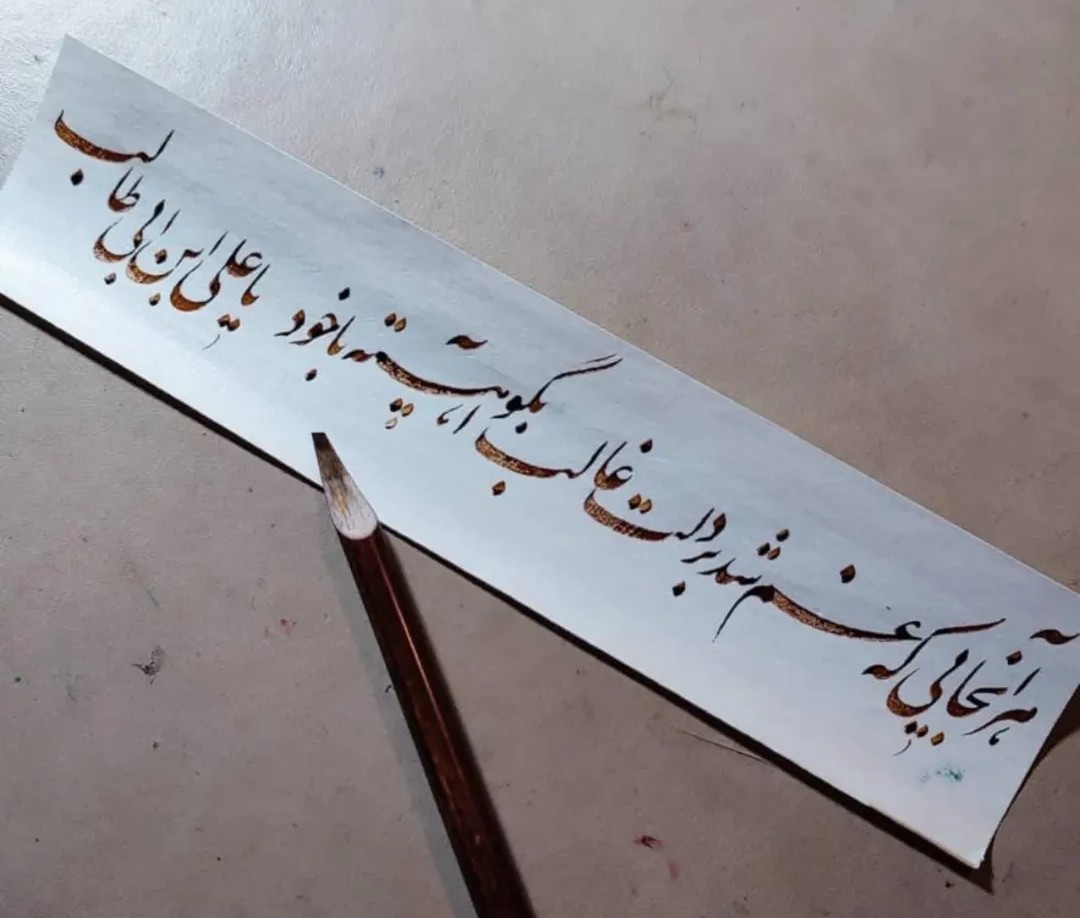 هر آنجایی که غم شد بر دلت غالب بگو آهسته با خود یا علی ابن ابی طالب